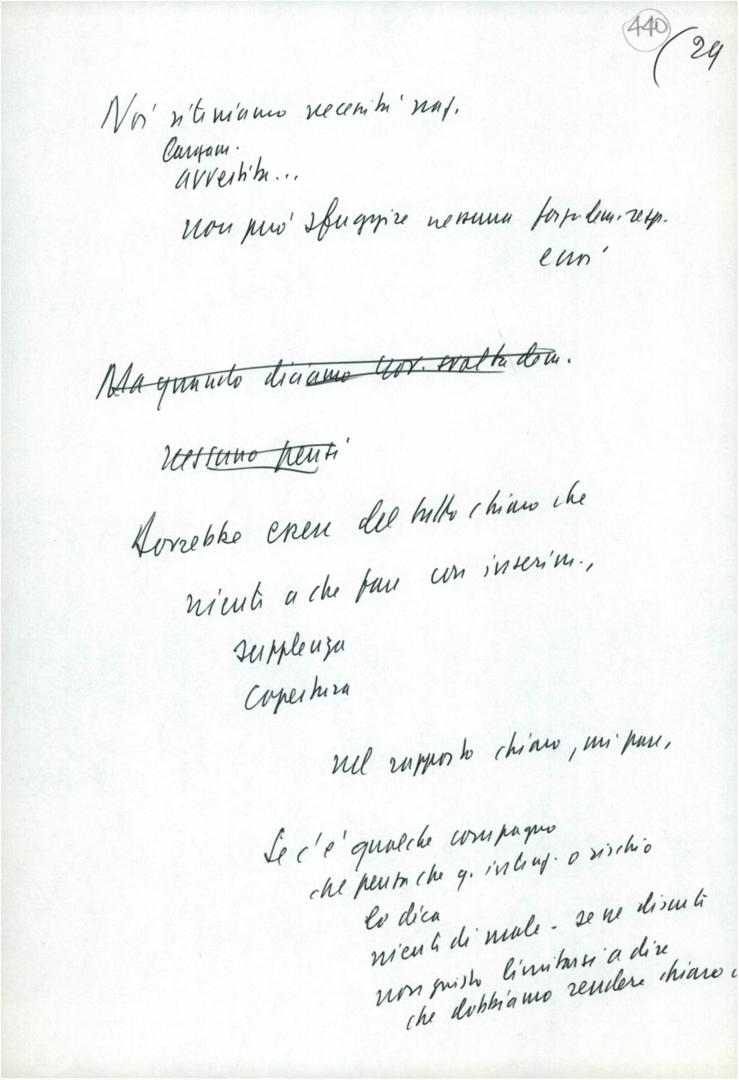 440
(24
Noi riteniamo necessità nag.
avvertita...
non può sfuggire nessuna forza dem. resp.
e così
Ma quando diciamo gov. svolta dem.
nessuno pensi
Dovrebbe essere del tutto chiaro che
niente a che fare con inserim.,
supplenza
copertura
nel rapporto chiaro, mi pare,
Se c'è qualche compagno
che pensa che q. o rischio
lo dica
niente di male - se ne discute
non giusto limitarsi a dire
che dobbiamo rendere chiaro